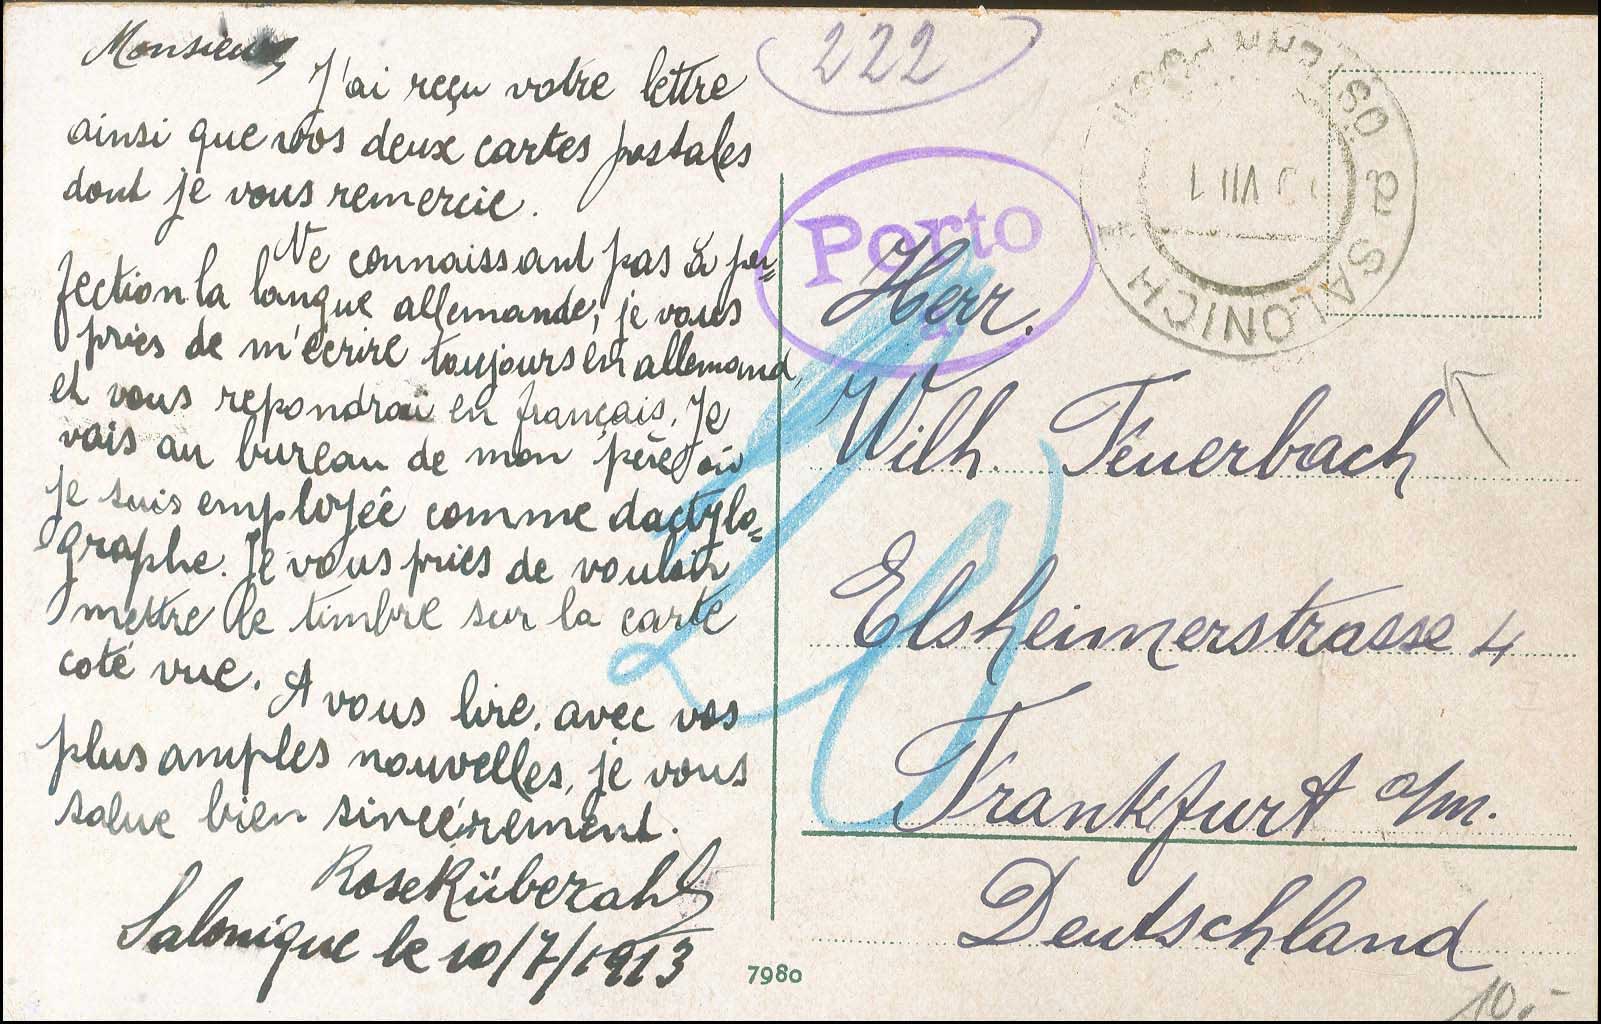 Monsieur,
J'ai reçu votre lettre
ainsi que vos deux cartes postales
dont je vous remercie.
Ne connaissant pas à per=
fection la langue allemande, je vous
pries de m'écrire toujours en allemand,
et vous repondrai en français. Je
vais au bureau de mon père où
je suis employée comme dactylo=
graphe. Je vous pries de vouloir
mettre le timbre sur la carte
coté vue. A vous lire, avec vos
plus amples nouvelles, je vous
salue bien sincérement.
Rose Küberzahl
Salonique le 10/7/1913
7980
222
Porto
20
SALONICH
VII 1
Herr.
Wilh. Feuerbach
Elsheimerstrasse 4
Frankfurt a/m.
Deutschland
10.-